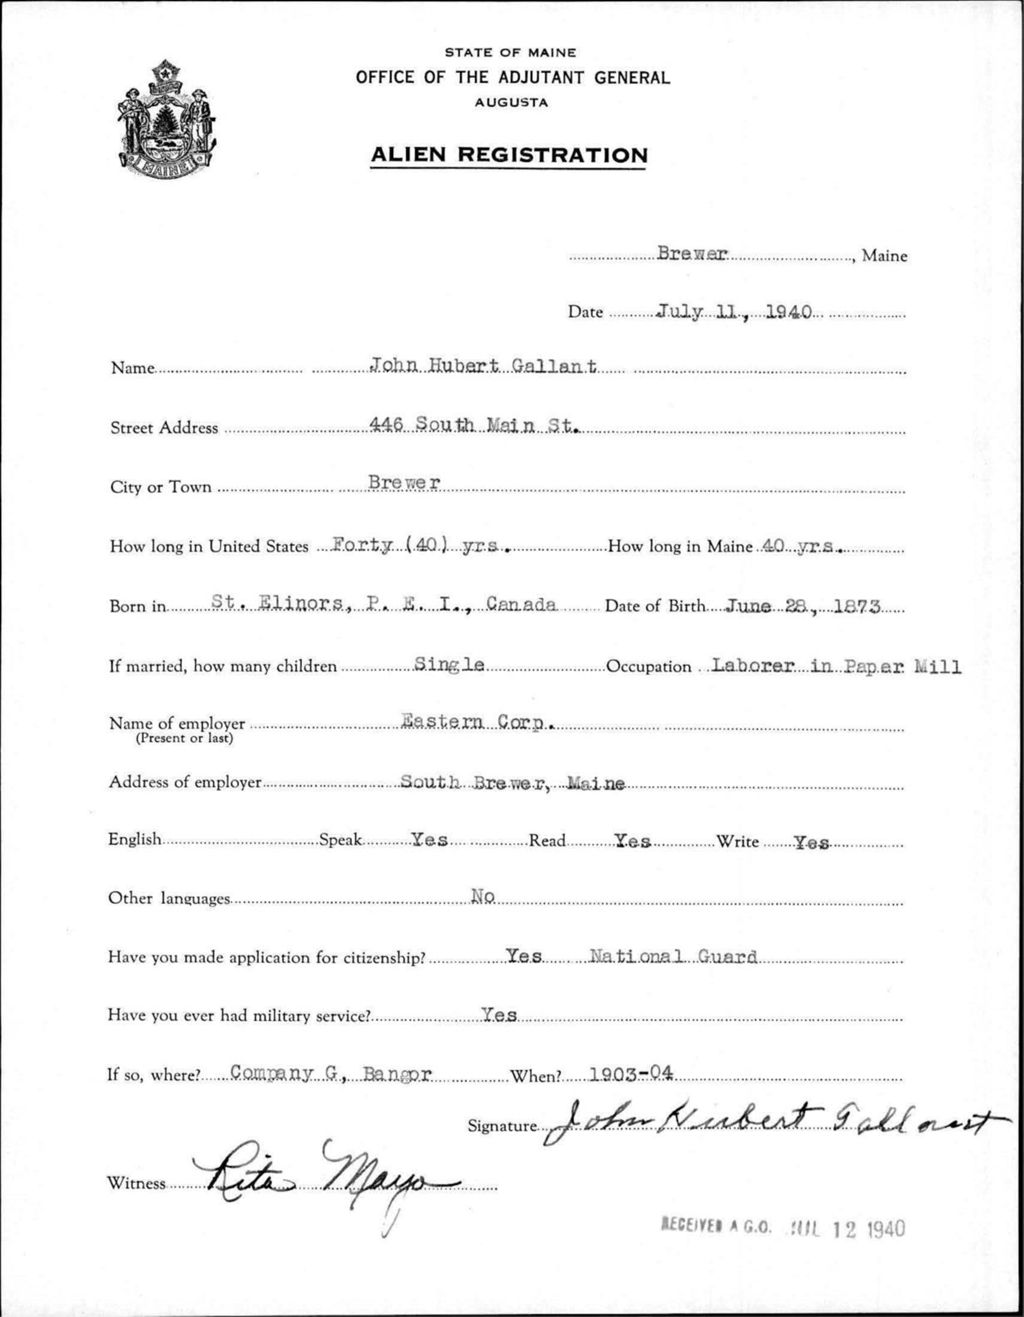 STATE OF MAINE
OFFICE OF THE ADJUTANT GENERAL
AUGUSTA
ALIEN REGISTRATION
MAINE
Brewer, Maine
Date July 11, 1940
Name John Hubert Gallant
Street Address 446 South Main St.
City or Town Brewer
How long in United States Forty (40) yrs. How long in Maine 40 yrs.
Born in St. Elinors, P. E. I., Canada Date of Birth June 28, 1873
If married, how many children Single Occupation Laborer in Paper Mill
Name of employer Eastern Corp.
(Present or last)
Address of employer South Brewer, Maine
English Speak Yes Read Yes Write Yes
Other languages No
Have you made application for citizenship? Yes National Guard
Have you ever had military service? Yes
If so, where? Company G, Bangor When? 1903-04
Signature John Hubert Gallant
Witness Rita Mayo
RECEIVED A.G.O. JUL 12 1940